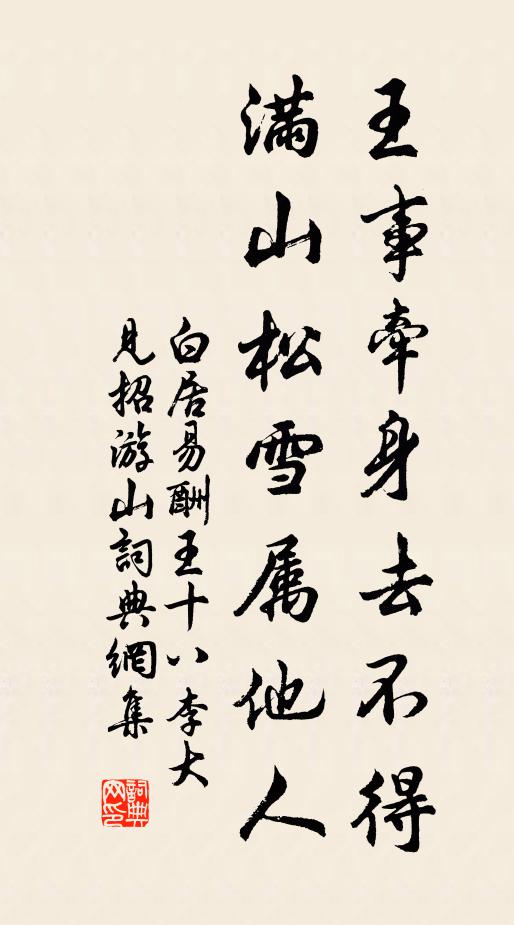 王事牽身去不得
滿山松雪属他人
白居易酬王十八李大
見招游山詞典網集
詞典
网印